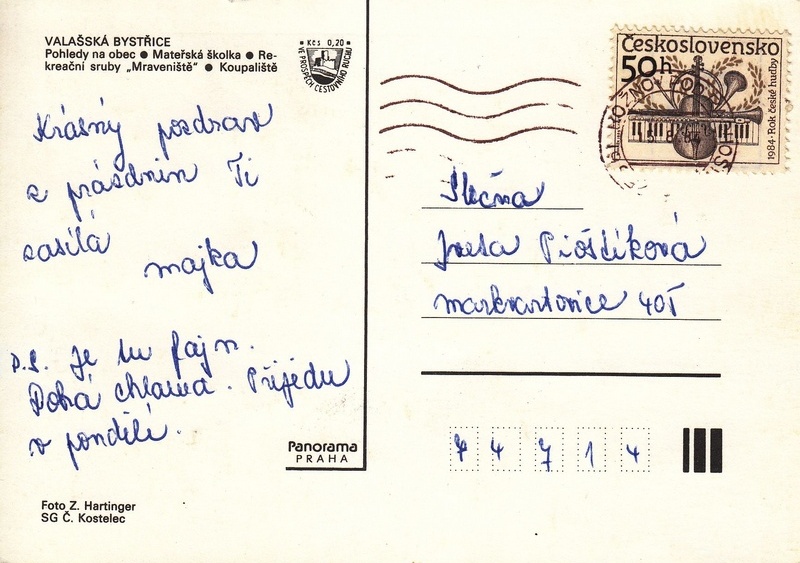 VALAŠSKÁ BYSTŘICE
Pohledy na obec ● Mateřská školka ● Re-
kreační sruby „Mraveniště" ● Koupaliště
Kčs 0,20
VE PROSPĚCH CESTOVNÍHO RUCHU
Krásný pozdrav
z prázdnin Ti
zasílá
majka
P.S. Je tu fajn.
Dobrá chlawa. Přijedu
v pondělí.
Panorama
PRAHA
Foto Z. Hartinger
SG Č. Kostelec
Československo
50h
1984 · Rok české hudby
Slečna
Iveta Pioštíková
Markvartovice 401
7 4 7 1 4